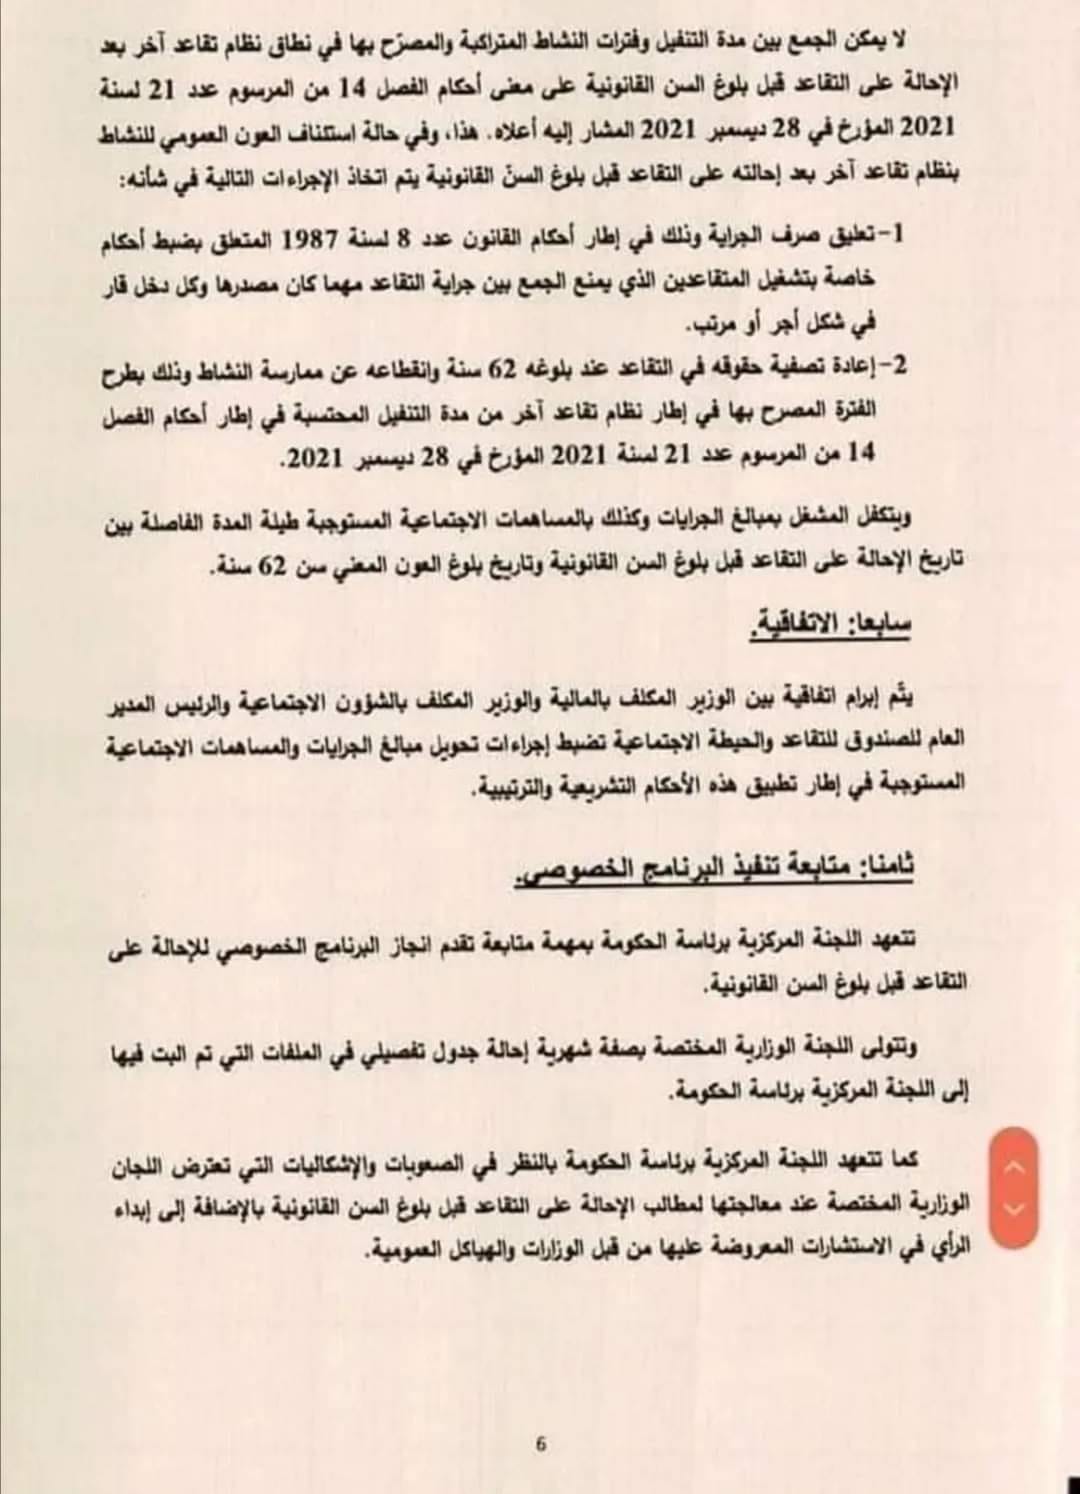 لا يمكن الجمع بين مدة التنفيل وفترات النشاط المتراكبة والمصرّح بها في نطاق نظام تقاعد آخر بعد
الإحالة على التقاعد قبل بلوغ السن القانونية على معنى أحكام الفصل 14 من المرسوم عدد 21 لسنة
2021 المؤرخ في 28 ديسمبر 2021 المشار إليه أعلاه. هذا، وفي حالة استئناف العون العمومي للنشاط
بنظام تقاعد آخر بعد إحالته على التقاعد قبل بلوغ السنّ القانونية يتم اتخاذ الإجراءات التالية في شأنه:
1-تعليق صرف الجراية وذلك في إطار أحكام القانون عدد 8 لسنة 1987 المتعلق بضبط أحكام
خاصة بتشغيل المتقاعدين الذي يمنع الجمع بين جراية التقاعد مهما كان مصدرها وكل دخل قار
في شكل أجر أو مرتب.
2-إعادة تصفية حقوقه في التقاعد عند بلوغه 62 سنة وانقطاعه عن ممارسة النشاط وذلك بطرح
الفترة المصرح بها في إطار نظام تقاعد آخر من مدة التنفيل المحتسبة في إطار أحكام الفصل
14 من المرسوم عدد 21 لسنة 2021 المؤرخ في 28 ديسمبر 2021.
ويتكفل المشغل بمبالغ الجرايات وكذلك بالمساهمات الاجتماعية المستوجبة طيلة المدة الفاصلة بين
تاريخ الإحالة على التقاعد قبل بلوغ السن القانونية وتاريخ بلوغ العون المعني سن 62 سنة.
سابعا: الاتفاقية.
يتّم إبرام اتفاقية بين الوزير المكلف بالمالية والوزير المكلف بالشؤون الاجتماعية والرئيس المدير
العام للصندوق للتقاعد والحيطة الاجتماعية تضبط إجراءات تحويل مبالغ الجرايات والمساهمات الاجتماعية
المستوجبة في إطار تطبيق هذه الأحكام التشريعية والترتيبية.
ثامنا: متابعة تنفيذ البرنامج الخصوصي.
تتعهد اللجنة المركزية برئاسة الحكومة بمهمة متابعة تقدم انجاز البرنامج الخصوصي للإحالة على
التقاعد قبل بلوغ السن القانونية.
وتتولى اللجنة الوزارية المختصة بصفة شهرية إحالة جدول تفصيلي في الملفات التي تم البت فيها
إلى اللجنة المركزية برئاسة الحكومة.
كما تتعهد اللجنة المركزية برئاسة الحكومة بالنظر في الصعوبات والإشكاليات التي تعترض اللجان
الوزارية المختصة عند معالجتها لمطالب الإحالة على التقاعد قبل بلوغ السن القانونية بالإضافة إلى إبداء
الرأي في الاستشارات المعروضة عليها من قبل الوزارات والهياكل العمومية.
6